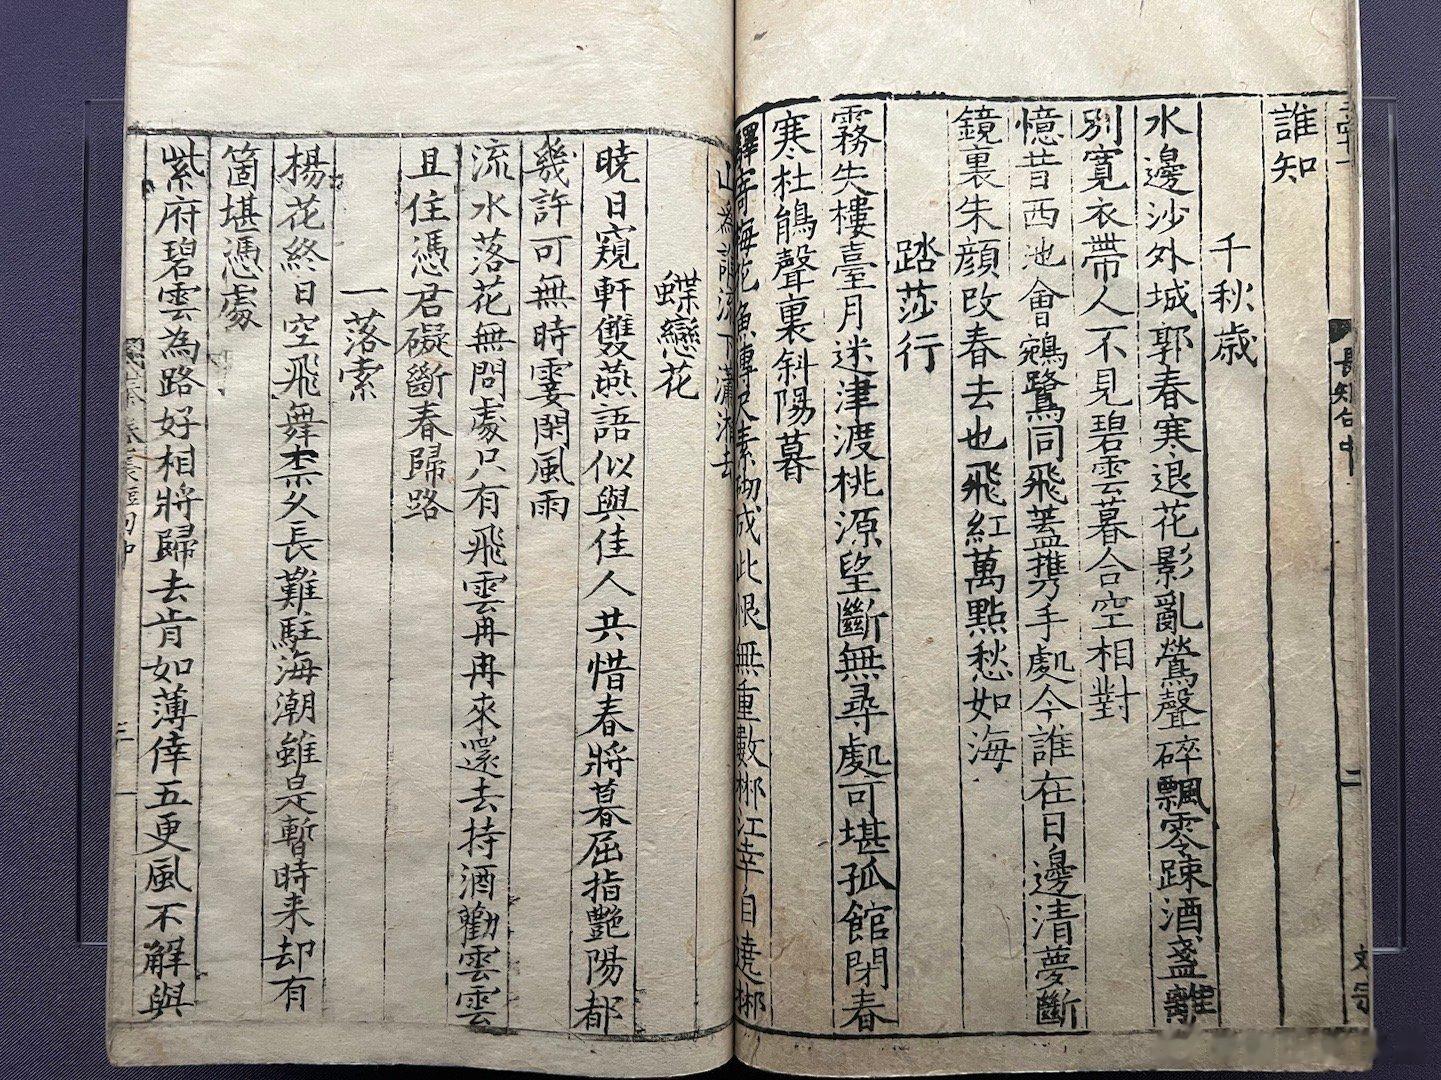 長短句中
二
誰知
千秋歲
水邊沙外城郭春寒退花影亂鶯聲碎飄零踈酒盞離
別寬衣帶人不見碧雲暮合空相對
憶昔西池會鵷鷺同飛蓋攜手處今誰在日邊清夢斷
鏡裏朱顔改春去也飛紅萬點愁如海
踏莎行
霧失樓臺月迷津渡桃源望斷無尋處可堪孤館閉春
寒杜鵑聲裏斜陽暮
驛寄梅花魚傳尺素砌成此恨無重數郴江幸自遶郴
山為誰流下瀟湘去
蝶戀花
曉日窺軒雙燕語似與佳人共惜春將暮屈指艷陽都
幾許可無時霎閑風雨
流水落花無問處只有飛雲冉冉來還去持酒勸雲雲
且住憑君礙斷春歸路
一落索
楊花終日空飛舞柰久長難駐海潮雖是暫時来却有
箇堪憑處
紫府碧雲為路好相將歸去肯如薄倖五更風不解與